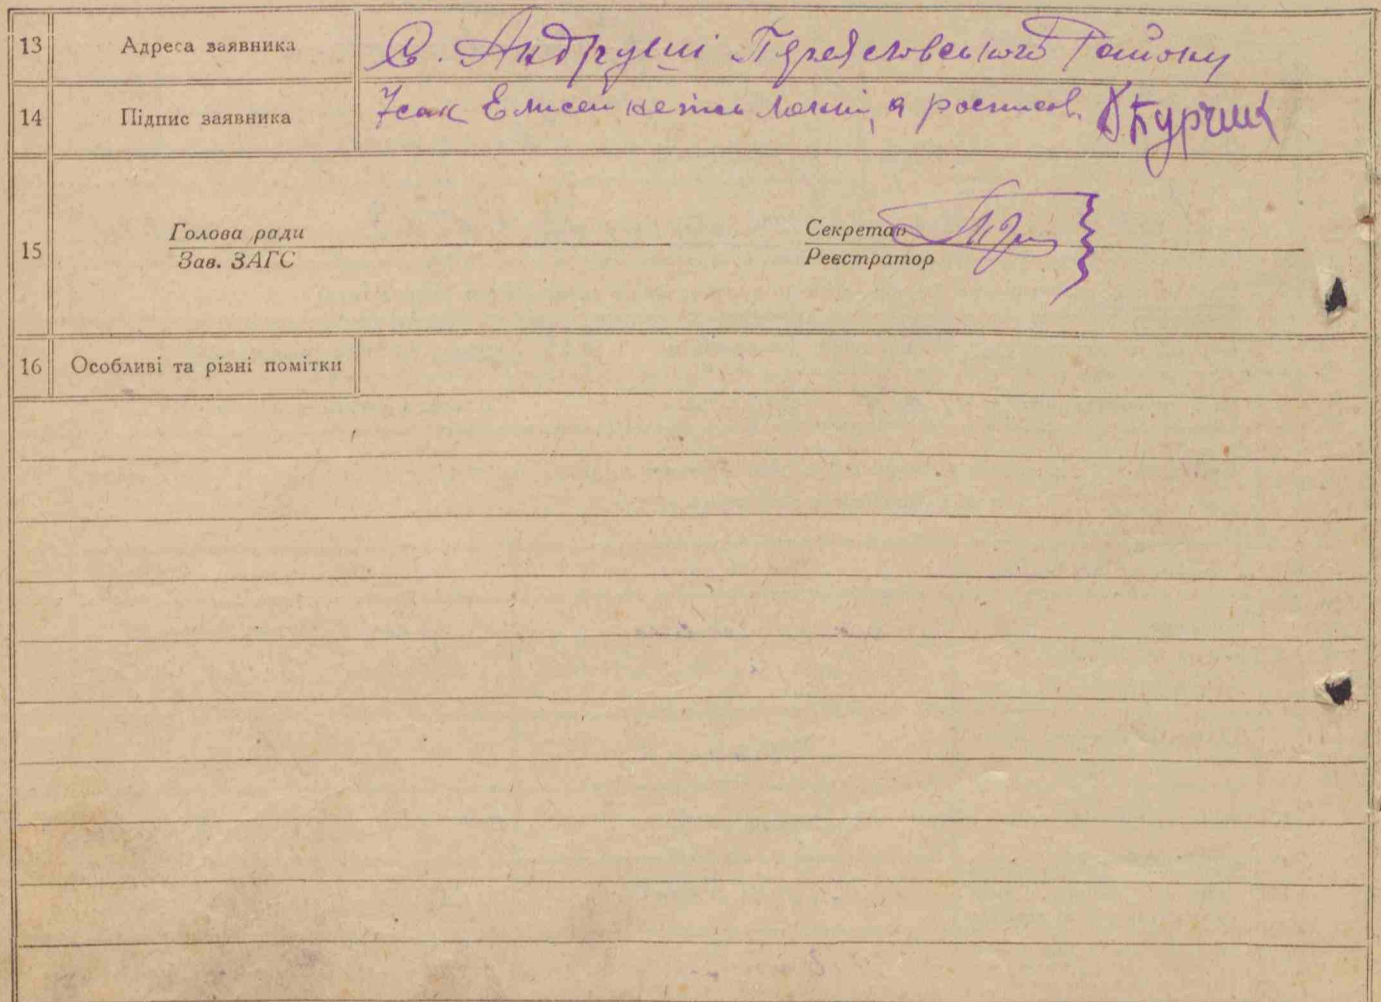 13 Адреса заявника С. Андруші Переясловського Району
14 Підпис заявника Усик Елисей а росписов. Курчик
15 Голова ради
Зав. ЗАГС
Секретар
Реєстратор
16 Особливі та різні помітки